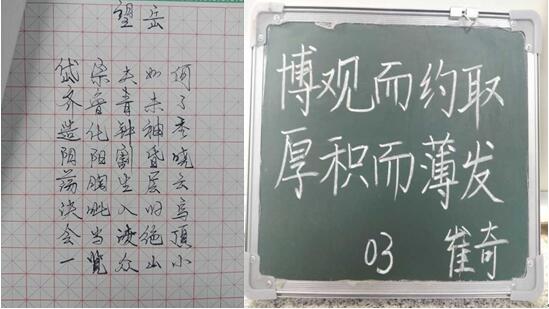 望岳
岱宗夫如何
齐鲁青未了
造化钟神秀
阴阳割昏晓
荡胸生层云
决眦入归鸟
会当凌绝顶
一览众山小
博观而约取
厚积而薄发
03 崔奇